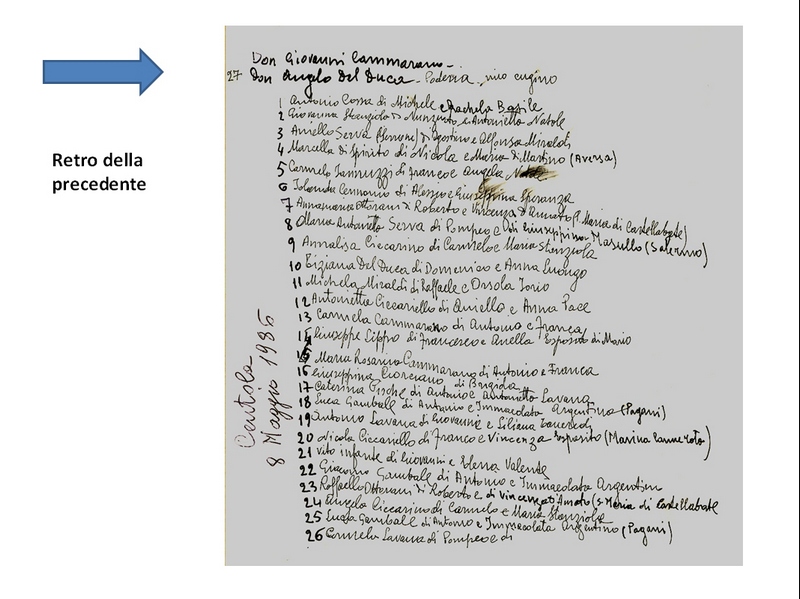 Retro della
precedente
Don Giovanni Cammarano.
27 Don Angelo Del Duca - Poderia, mio cugino
1 Antonio Cossa di Michele e Rachela Basile
2 Giovanna Stanziola di Nunziato e Antonietta Natole
3 Aniello Serva di Agostino e Alfonsa Miraldi
4 Marcella di Spirito di Nicola e Maria di Martino (Aversa)
5 Carmelo Iannuzzi di Franco e Angela
6 Iolanda Cennamo di Alessio e Giuseppina Speranza
7 Annamaria Ottorani di Roberto e Vincenza D'Amato (S. Maria di Castellabate)
8 Maria Antonietta Serva di Pompeo e di Giuseppina Masullo (Salerno)
9 Annalisa Ciccarino di Carmelo e Maria Stanziola
10 Tiziana Del Duca di Domenico e Anna Luongo
11 Michela Miraldi di Raffaele e Orsola Iorio
12 Antonietta Ciccariello di Aniello e Anna Pace
13 Carmela Cammarano di Antonio e Franca
14 Giuseppe Lippo di Francesco e Anella Esposito di Mario
15 Maria Rosaria Cammarano di Antonio e Franca
16 Giuseppina Ciorciano di Brigida
17 Caterina di Antonio e Antonietta Lavana
18 Luca Gambale di Antonio e Immacolata Argentino (Pagani)
19 Antonio Lavana di Giovanni e Liliana
20 Nicola Ciccariello di Franco e Vincenza Esposito (Marina Camerota)
21 Vito infante di Giovanni e Elena Valente
22 Giacomo Gambale di Antonio e Immacolata Argentino
23 Raffaello Ottorani di Roberto e di Vincenza Amato (S. Maria di Castellabate
24 Angelo Ciccarino di Carmelo e Maria Stanziola
25 Luca Gambale di Antonio e Immacolata Argentino (Pagani)
26 Carmela Lavana di Pompeo e di
Centola
8 Maggio 1986